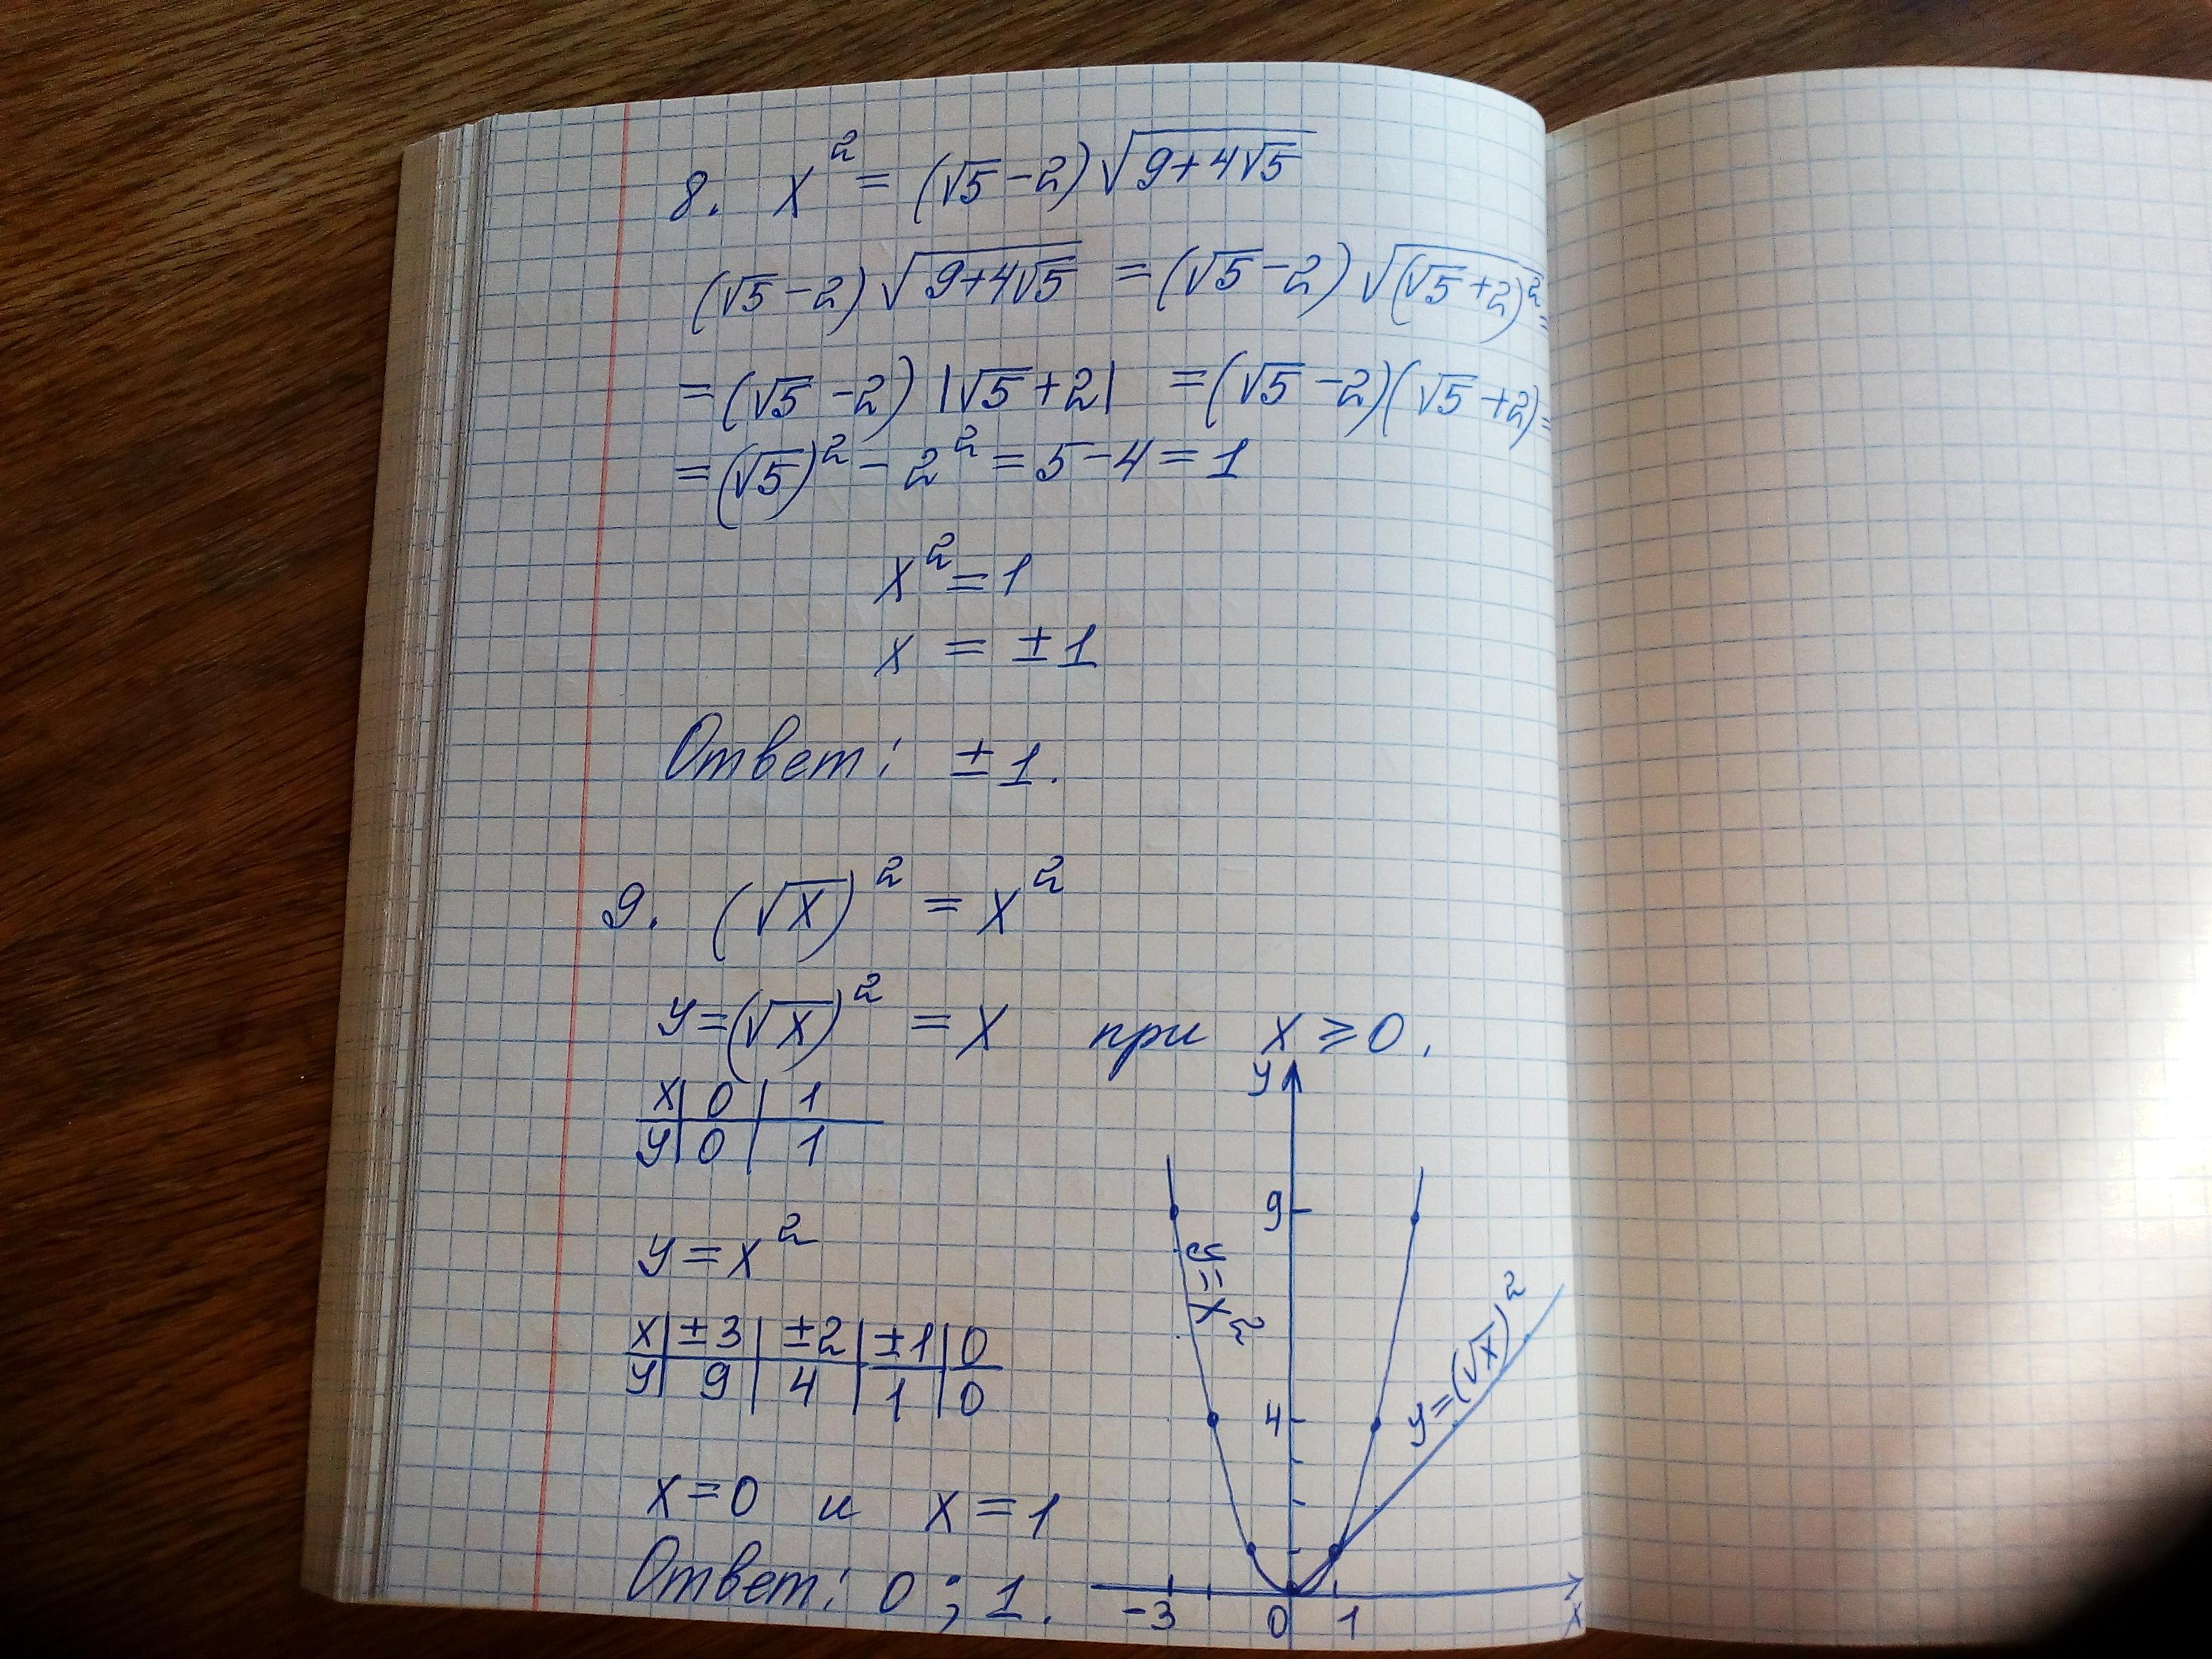 8. x² = (√5 − 2) √(9+4√5)
(√5 − 2) √(9+4√5) = (√5 − 2) √((√5 + 2)²) =
= (√5 − 2) |√5 + 2| = (√5 − 2)(√5 + 2) =
= (√5)² − 2² = 5 − 4 = 1
x² = 1
x = ±1
Ответ: ±1.
9. (√x)² = x²
y = (√x)² = x при x ≥ 0.
x | 0 | 1
y | 0 | 1
y = x²
x | ±3 | ±2 | ±1 | 0
y | 9 | 4 | 1 | 0
x = 0 и x = 1
Ответ: 0 ; 1.
y
9
y = x²
y = (√x)²
4
-3 0 1 x